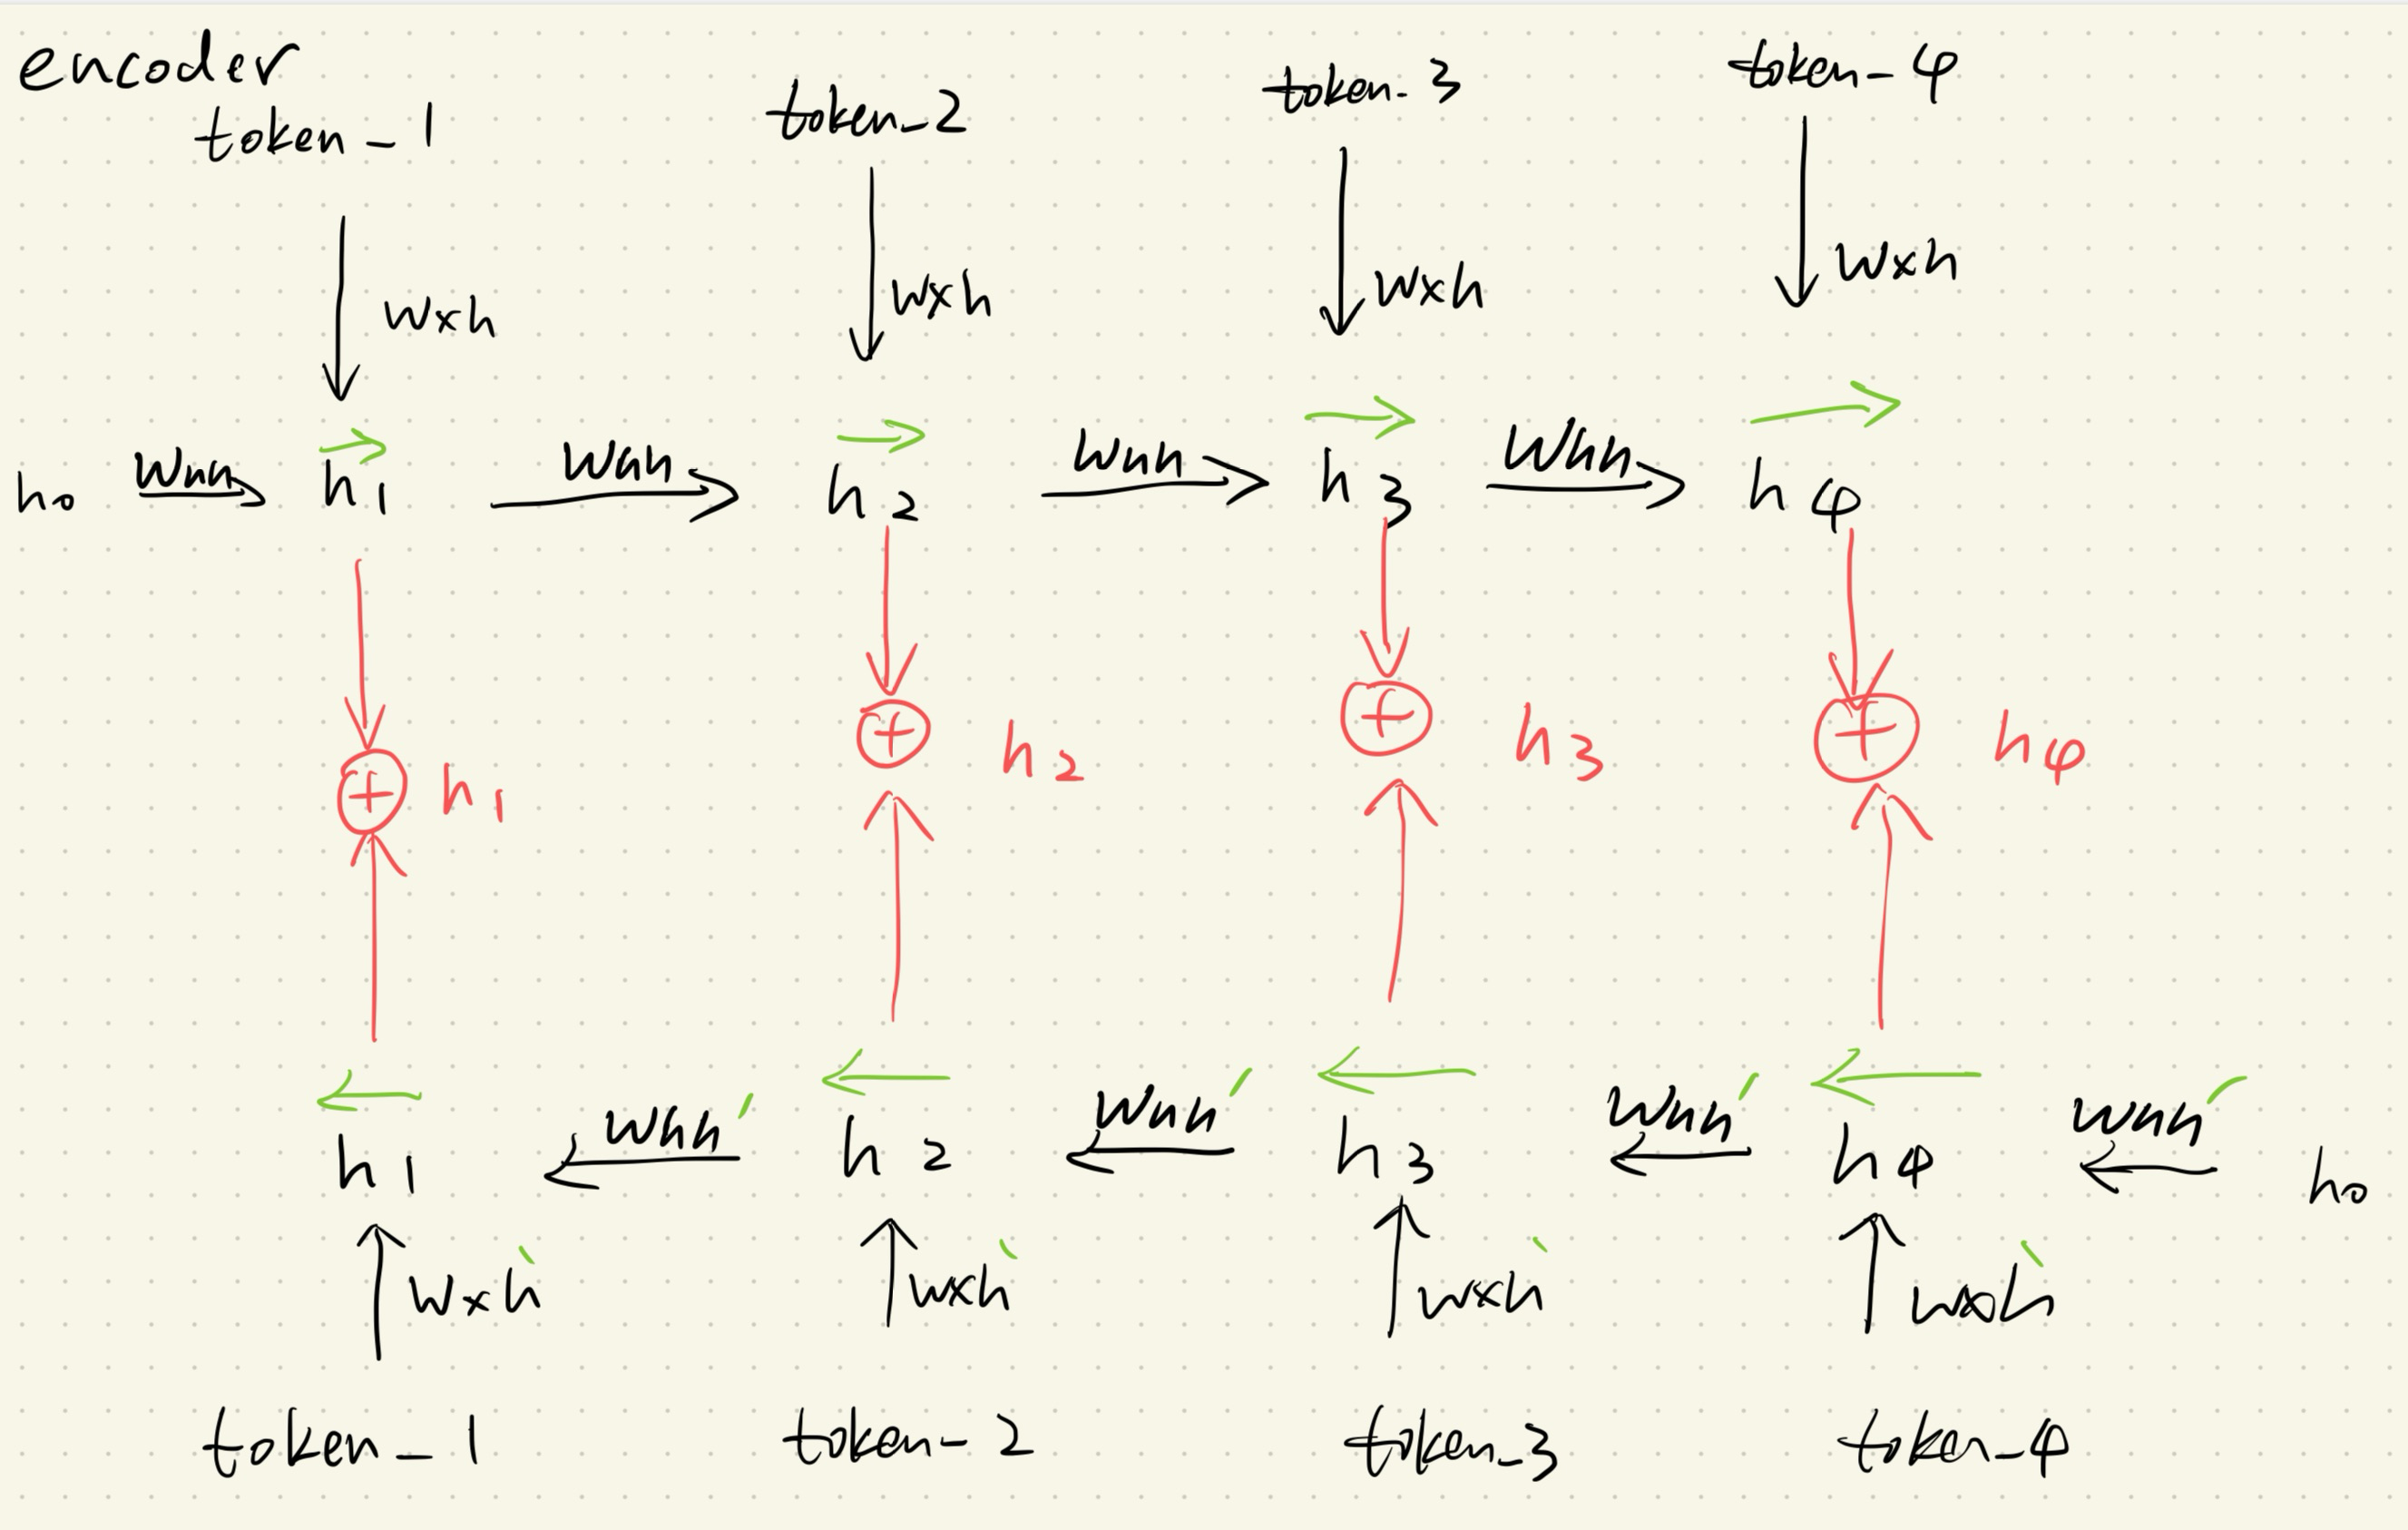 encoder
token_1 token_2 token_3 token_4
wxh wxh wxh wxh
h0 whh h1 whh h2 whh h3 whh h4
+ h1 + h2 + h3 + h4
h1 whh' h2 whh' h3 whh' h4 whh' h0
wxh' wxh' wxh' wxh'
token_1 token_2 token_3 token_4